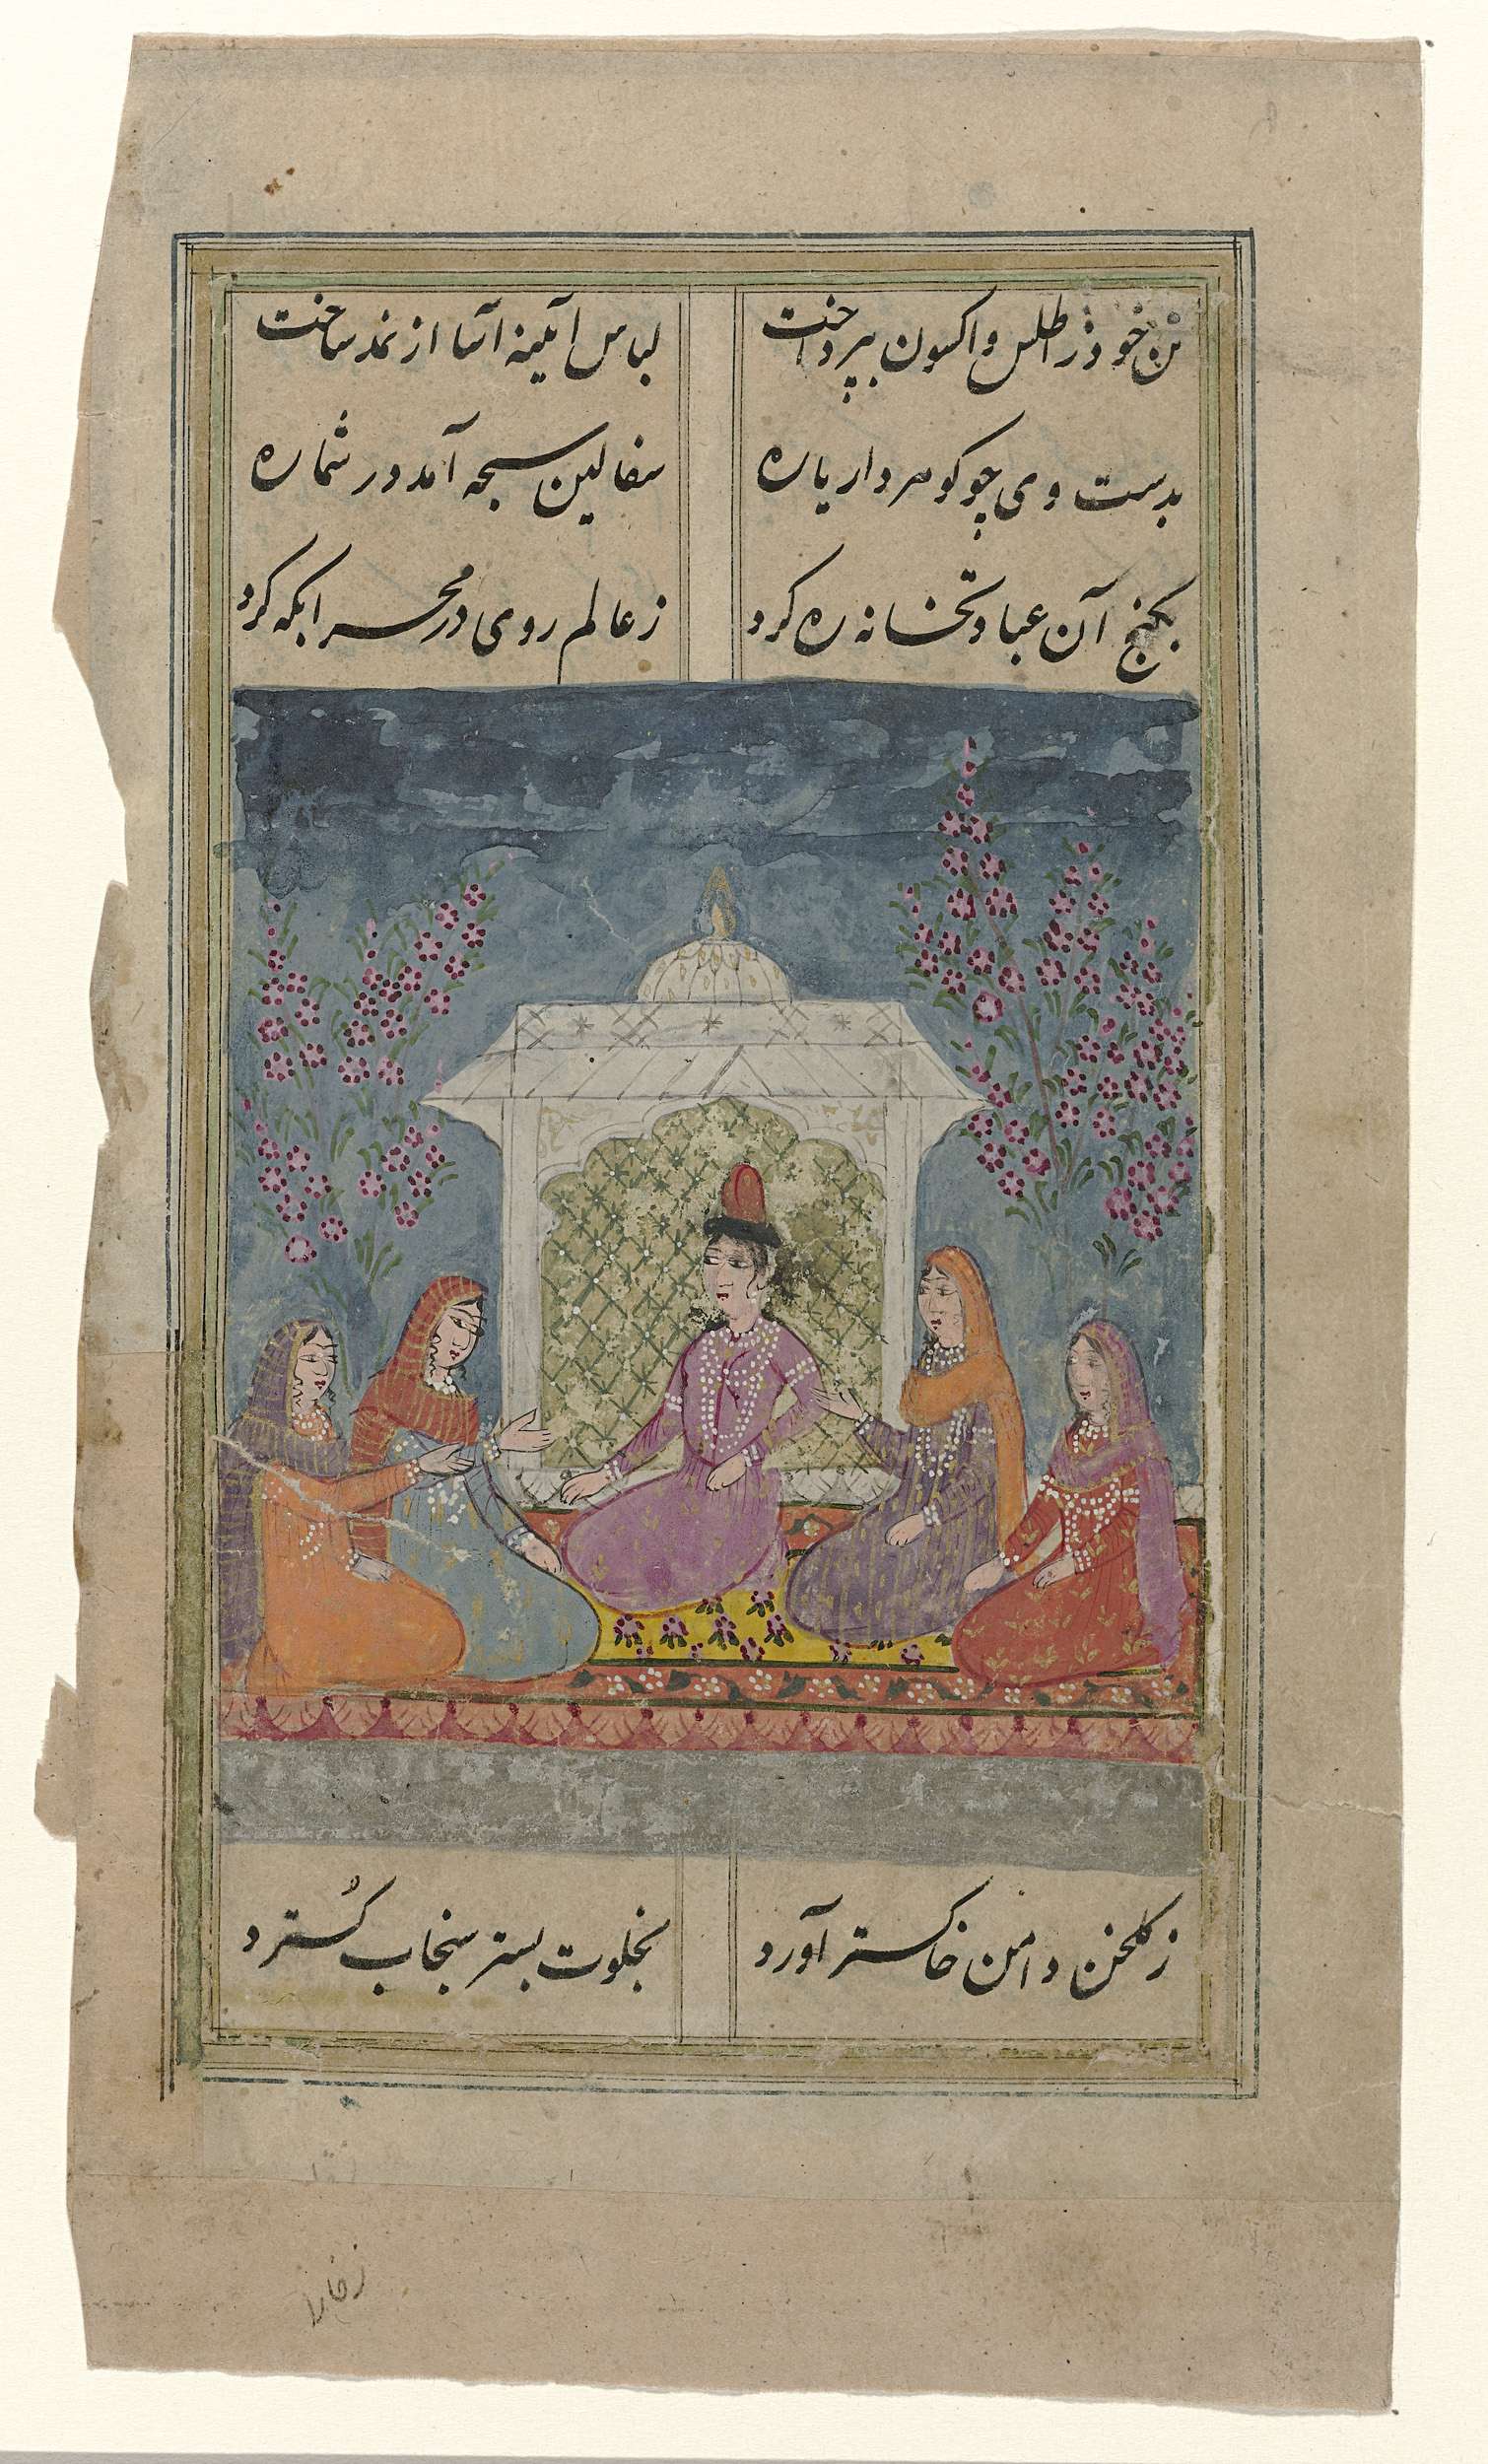 تن خود ز اطلس و اکسون بپرداخت
لباس آینه آسا از نمد ساخت
بدست وی چو گوهردار یاره
سفالین سبحه آمد در شماره
بکنج آن عبادتخانه ره کرد
ز عالم روی در محرابگه کرد
ز گلخن دامن خاکستر آورد
بخلوت بستر سنجاب گسترد